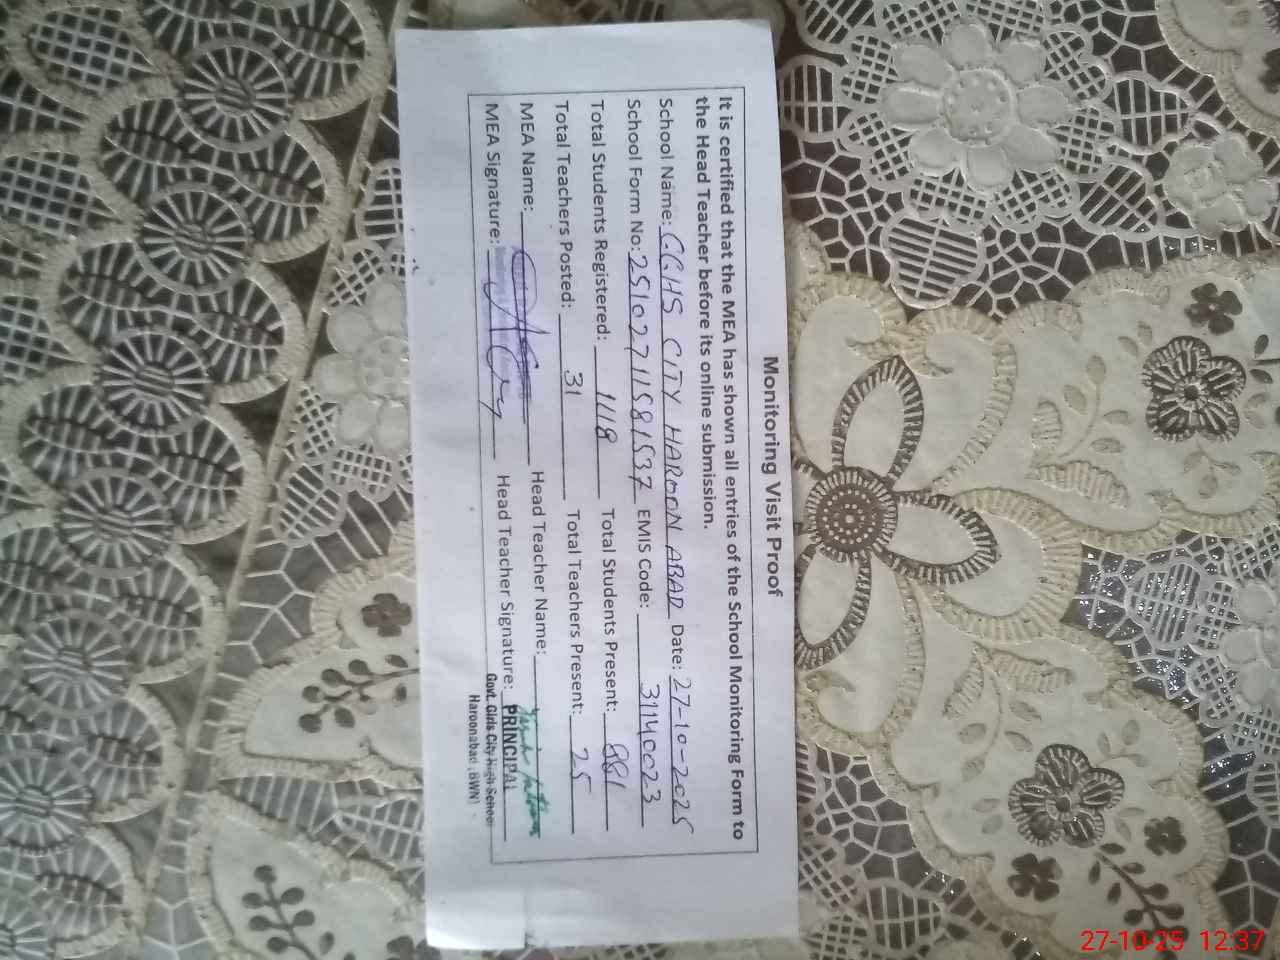 Monitoring Visit Proof
It is certified that the MEA has shown all entries of the School Monitoring Form to
the Head Teacher before its online submission.
School Name: GGHS CITY HAROON ABAD Date: 27-10-2025
School Form No: 25102711581537 EMIS Code: 31140023
Total Students Registered: 1118 Total Students Present: 881
Total Teachers Posted: 31 Total Teachers Present: 25
MEA Name: Head Teacher Name:
MEA Signature: Head Teacher Signature:
PRINCIPAL
Govt. Girls City High School
Haroonabad (BWN)
27-10-25 12:37